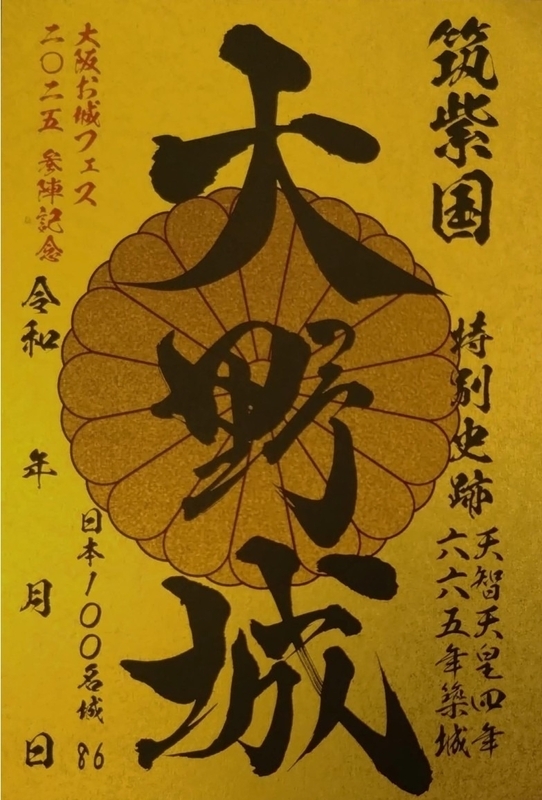 筑紫国
特別史跡
天智天皇四年
六六五年築城
大野城
日本100名城 86
大阪お城フェス
二〇二五 参陣記念
令和 年 月 日